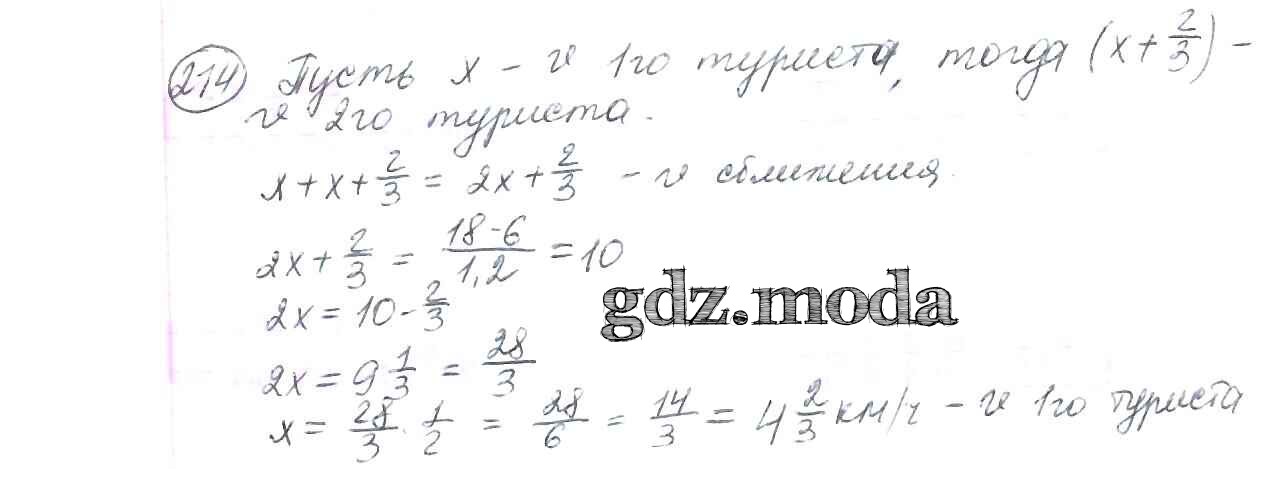 214 Пусть x – v 1го туриста, тогда (x + 2/3) –
v 2го туриста.
x + x + 2/3 = 2x + 2/3 – v сближения.
2x + 2/3 = (18-6)/1,2 = 10
2x = 10 - 2/3
gdz.moda
2x = 9 1/3 = 28/3
x = 28/3 · 1/2 = 28/6 = 14/3 = 4 2/3 км/ч – v 1го туриста